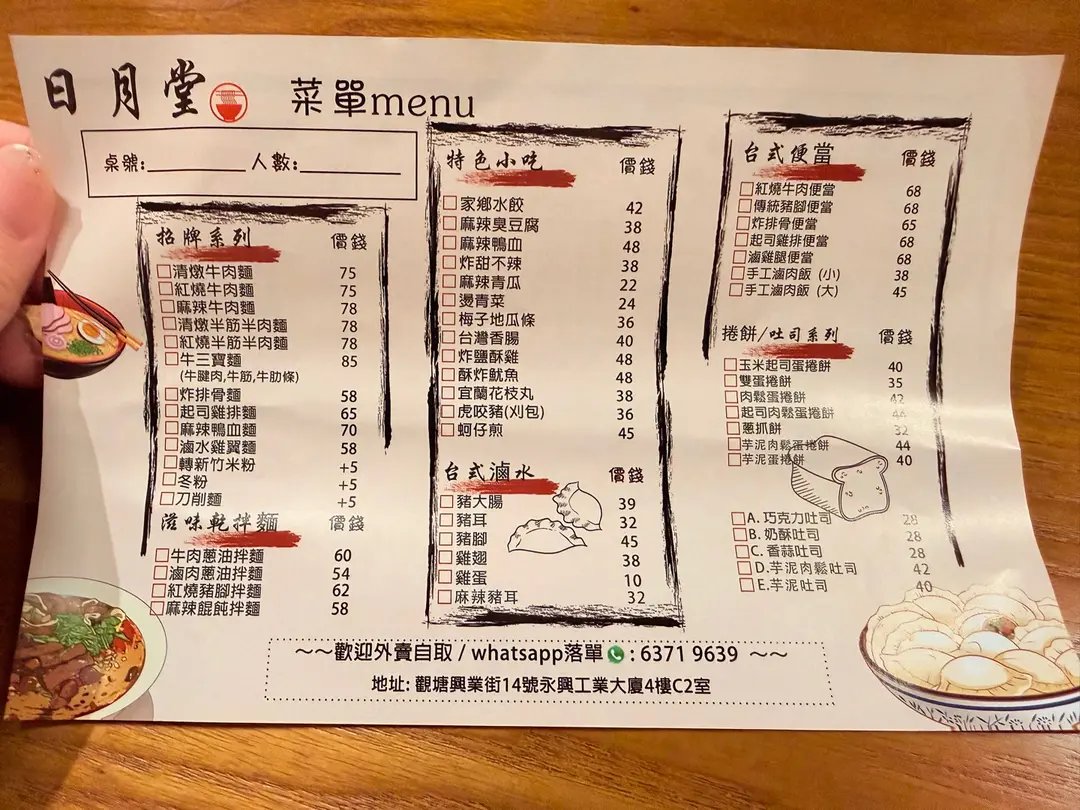 日月堂 菜單menu
桌號:________ 人數:________
招牌系列 價錢
清燉牛肉麵 75
紅燒牛肉麵 75
麻辣牛肉麵 78
清燉半筋半肉麵 78
紅燒半筋半肉麵 78
牛三寶麵 85
(牛腱肉,牛筋,牛肋條)
炸排骨麵 58
起司雞排麵 65
麻辣鴨血麵 70
滷水雞翼麵 58
轉新竹米粉 +5
冬粉 +5
刀削麵 +5
滋味乾拌麵 價錢
牛肉蔥油拌麵 60
滷肉蔥油拌麵 54
紅燒豬腳拌麵 62
麻辣餛飩拌麵 58
特色小吃 價錢
家鄉水餃 42
麻辣臭豆腐 38
麻辣鴨血 48
炸甜不辣 38
麻辣青瓜 22
燙青菜 24
梅子地瓜條 36
台灣香腸 40
炸鹽酥雞 48
酥炸魷魚 48
宜蘭花枝丸 38
虎咬豬(刈包) 36
蚵仔煎 45
台式滷水 價錢
豬大腸 39
豬耳 32
豬腳 45
雞翅 38
雞蛋 10
麻辣豬耳 32
台式便當 價錢
紅燒牛肉便當 68
傳統豬腳便當 68
炸排骨便當 65
起司雞排便當 68
滷雞腿便當 68
手工滷肉飯 (小) 38
手工滷肉飯 (大) 45
捲餅/吐司系列 價錢
玉米起司蛋捲餅 40
雙蛋捲餅 35
肉鬆蛋捲餅 42
起司肉鬆蛋捲餅 44
蔥抓餅 32
芋泥肉鬆蛋捲餅 44
芋泥蛋捲餅 40
A. 巧克力吐司 28
B. 奶酥吐司 28
C. 香蒜吐司 28
D.芋泥肉鬆吐司 42
E.芋泥吐司 40
~~歡迎外賣自取 / whatsapp落單 : 6371 9639 ~~
地址: 觀塘興業街14號永興工業大廈4樓C2室